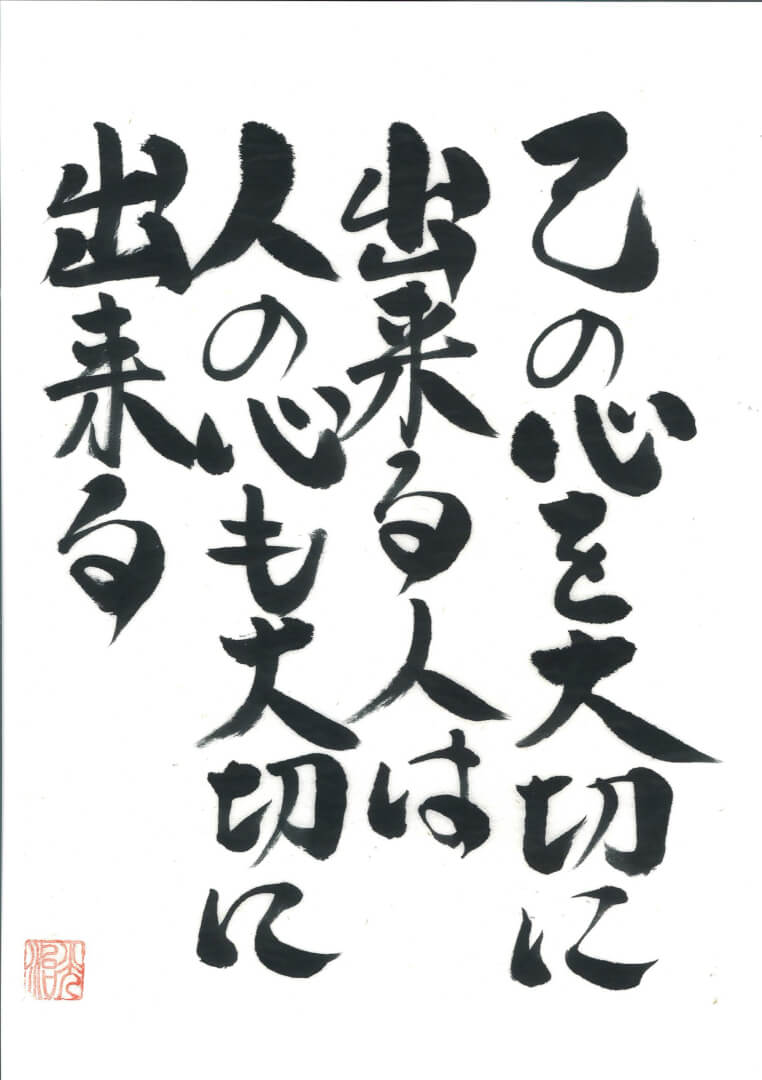 己の心を大切に
出来る人は
人の心も大切に
出来る